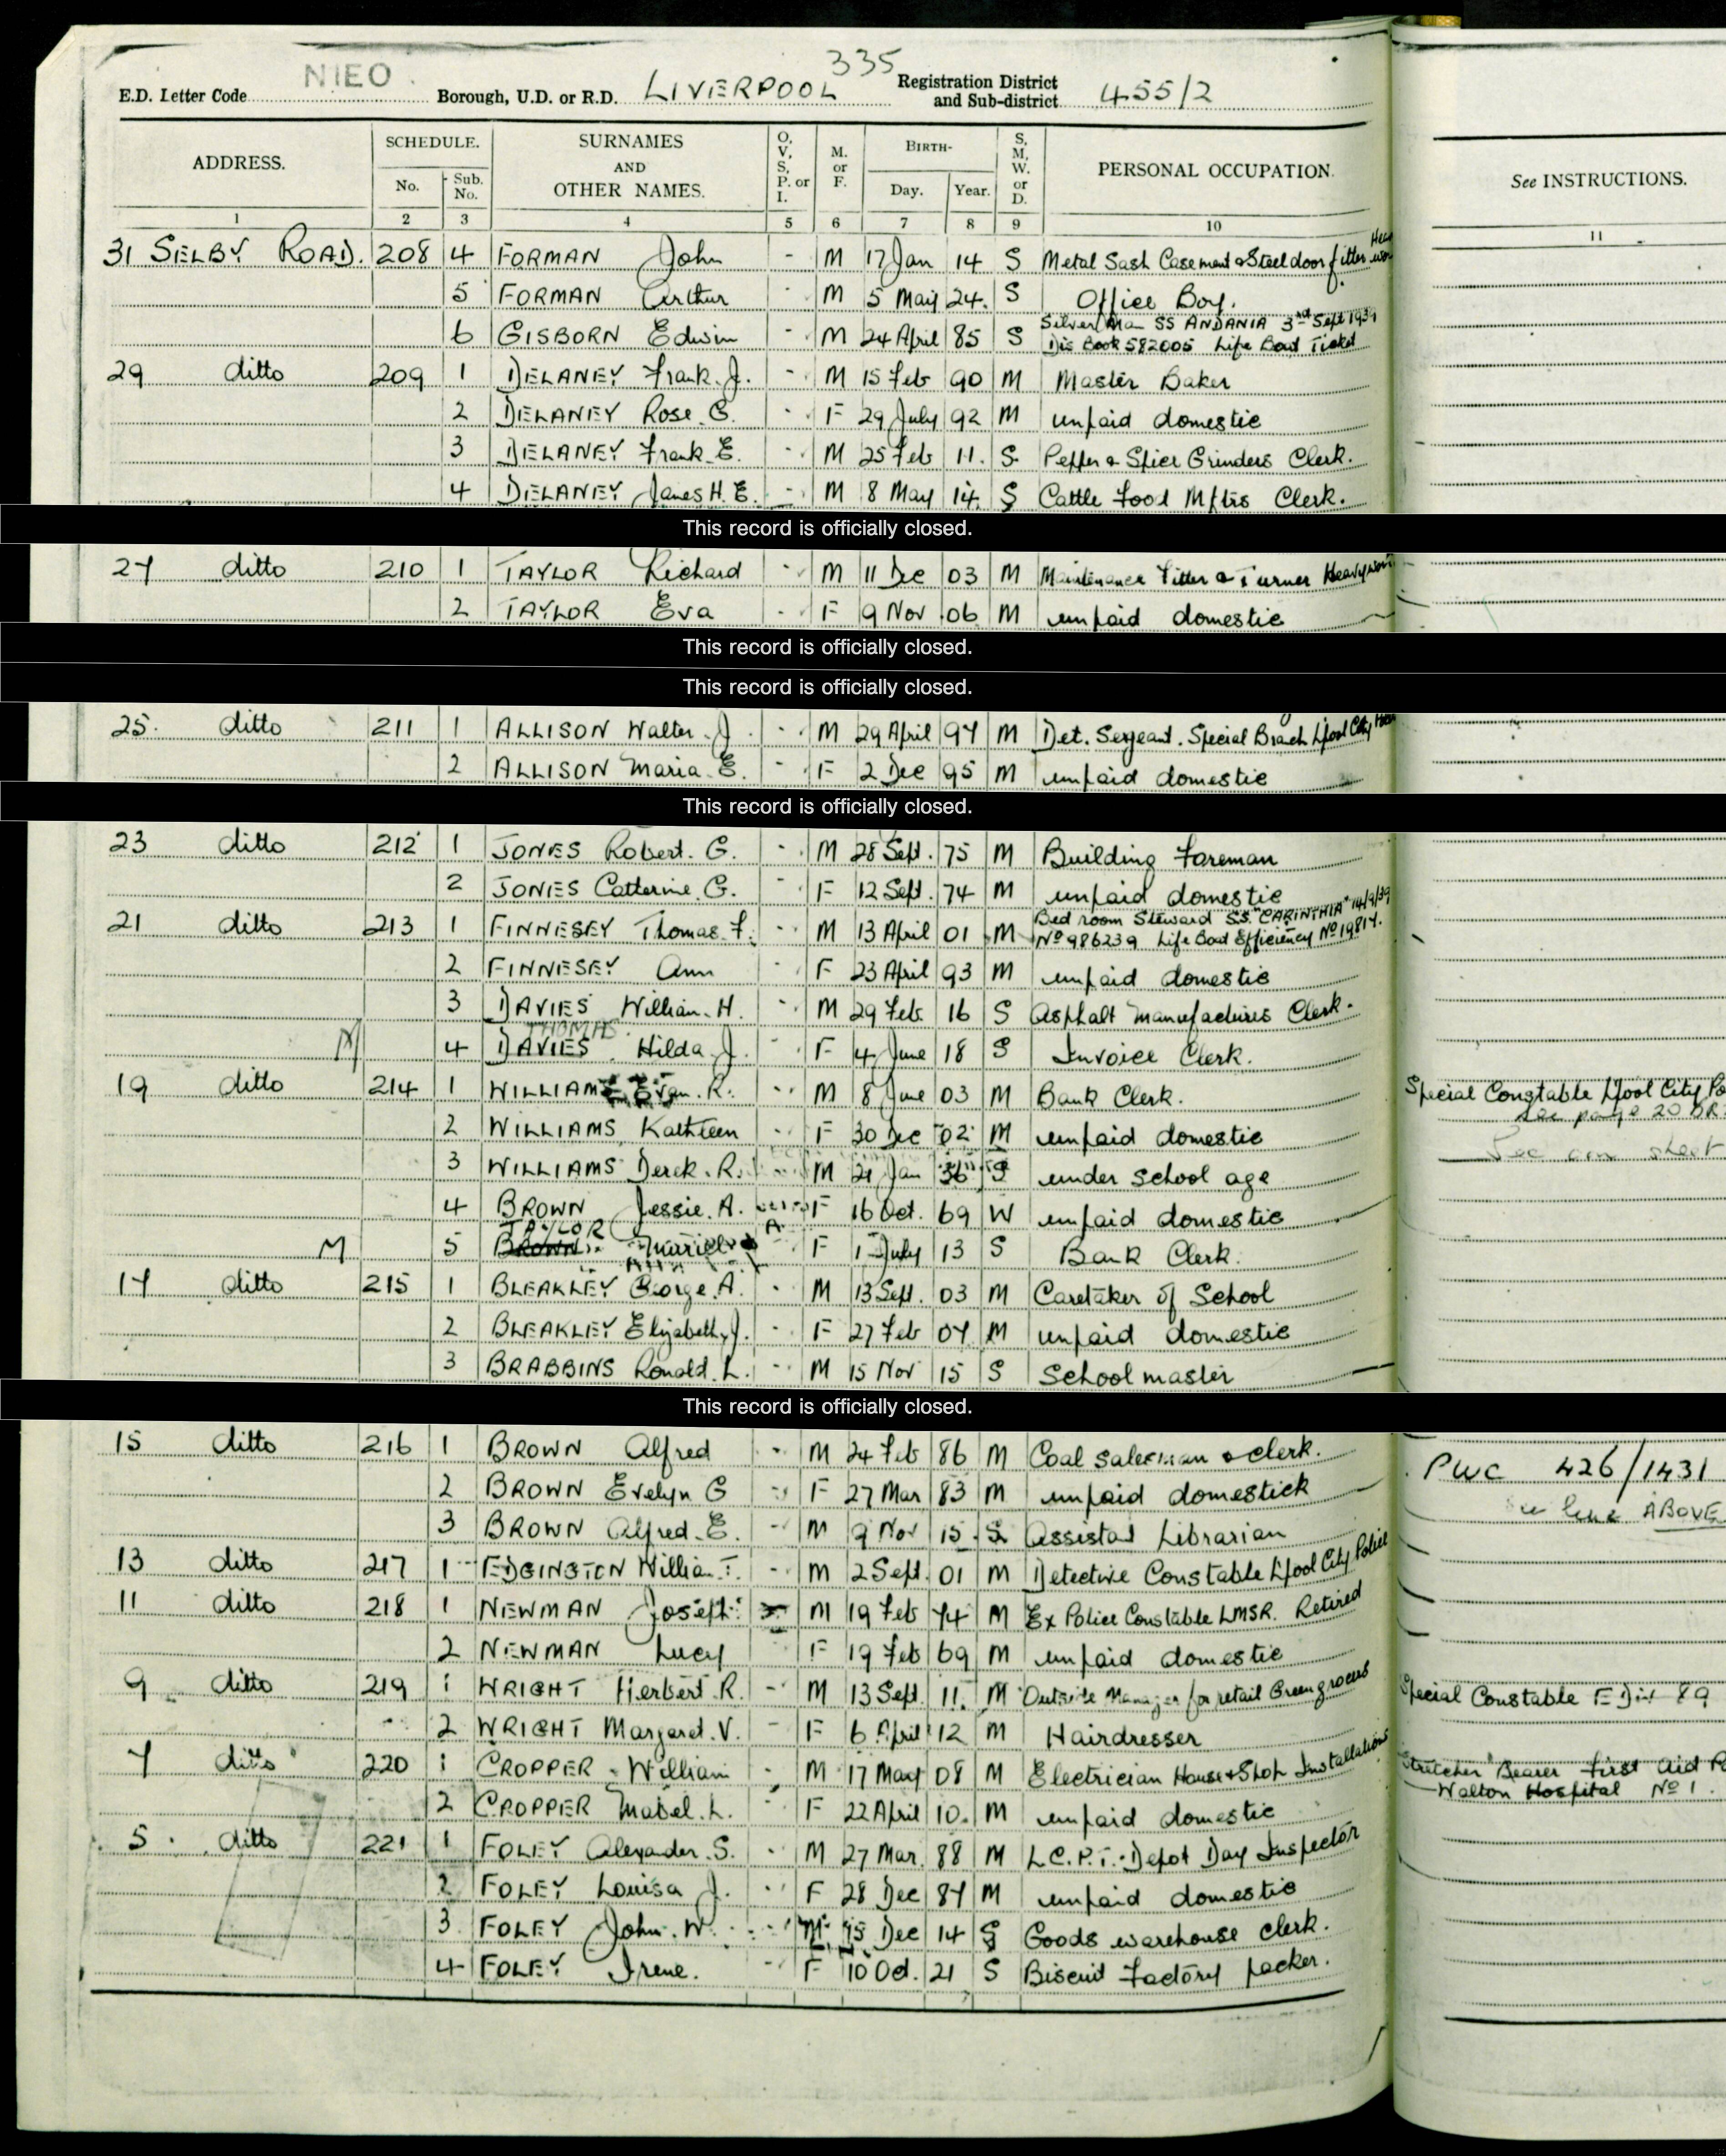 NIEO
335
E.D. Letter Code Borough, U.D. or R.D. LIVERPOOL Registration District and Sub-district 455/2
ADDRESS. SCHEDULE. No. Sub. No. SURNAMES AND OTHER NAMES. O, V, S, P. or I. M. or F. BIRTH- Day. Year. S, M, W. or D. PERSONAL OCCUPATION. See INSTRUCTIONS.
1 2 3 4 5 6 7 8 9 10 11
31 SELBY ROAD. 208 4 FORMAN John - M 17 Jan 14 S Metal Sash Casement & Steel door fitter
5 FORMAN Arthur - M 5 May 24. S Office Boy.
6 GISBORN Edwin - M 24 April 85 S Silver Man SS ANDANIA 3rd Sept 1939
Dis Book 582005 Life Boat Ticket
29 ditto 209 1 DELANEY Frank. J. - M 15 Feb 90 M Master Baker
2 DELANEY Rose. G. - F 29 July 92 M unpaid domestic
3 DELANEY Frank. E. - M 25 Feb 11. S. Pepper & Spice Grinders Clerk.
4 DELANEY James H. E. - M 8 May 14. S Cattle Food Mftrs Clerk.
This record is officially closed.
27 ditto 210 1 TAYLOR Richard - M 11 Dec 03 M Maintenance Fitter & Turner Heavy work
2 TAYLOR Eva - F 9 Nov 06 M unpaid domestic
This record is officially closed.
This record is officially closed.
25. ditto 211 1 ALLISON Walter. J - M 29 April 97 M Det. Sergeant. Special Branch L'pool City
2 ALLISON Maria. E. - F 2 Dec 95 M unpaid domestic
This record is officially closed.
23 ditto 212 1 JONES Robert. G. - M 28 Sept. 75 M Building Foreman
2 JONES Catherine. G. - F 12 Sept. 74 M unpaid domestic
21 ditto 213 1 FINNESEY Thomas. F. - M 13 April 01 M Bed room Steward SS. "CARINTHIA" 14/9/39
No 986239 Life Boat Efficiency No 19817.
2 FINNESEY Ann - F 23 April 93 M unpaid domestic
3 DAVIES William. H. - M 29 Feb. 16 S Asphalt Manufacturers Clerk.
THOMAS
M 4 DAVIES Hilda. J. - F 4 June 18 S Invoice Clerk.
19 ditto 214 1 WILLIAMS Evan. R. - M 8 June 03 M Bank Clerk. Special Constable L'pool City Po
see page 20 BR
2 WILLIAMS Kathleen - F 30 Dec 02 M unpaid domestic
See sheet
3 WILLIAMS Derek. R. - M 21 Jan 36 S under school age
4 BROWN Jessie. A. F 16 Oct. 69 W unpaid domestic
TAYLOR A
M 5 BROWN Muriel F 1 July 13 S Bank Clerk.
17 ditto 215 1 BLEAKLEY George. A. - M 13 Sept. 03 M Caretaker of School
2 BLEAKLEY Elizabeth, J. - F 27 Feb 07 M unpaid domestic
3 BRABBINS Ronald. L. - M 15 Nov 15 S School master
This record is officially closed.
15 ditto 216 1 BROWN Alfred - M 24 Feb 86 M Coal salesman & clerk. PWC 426/1431
2 BROWN Evelyn G - F 27 Mar 83 M unpaid domestick line ABOVE
3 BROWN Alfred. E. - M 9 Nov 15. S. Assistant Librarian
13 ditto 217 1 EDGINGTON William. T. - M 2 Sept. 01 M Detective Constable L'pool City Police
11 ditto 218 1 NEWMAN Joseph M 19 Feb 74 M Ex Police Constable LMSR. Retired
2 NEWMAN Lucy F 19 Feb 69 M unpaid domestic
9 ditto 219 1 WRIGHT Herbert. R. - M 13 Sept. 11. M Outside Manager for retail Greengrocers Special Constable E Div 89
2 WRIGHT Margaret. V. - F 6 April 12 M Hairdresser
7 ditto 220 1 CROPPER William - M 17 May 08 M Electrician House & Shop Installations Stretcher Bearer First Aid Po
Walton Hospital No 1.
2 CROPPER Mabel. L. - F 22 April 10. M unpaid domestic
5 ditto 221 1 FOLEY Alexander. S. - M 27 Mar. 88 M L.C.P.T. Depot Day Inspector
2 FOLEY Louisa J. - F 28 Dec 87 M unpaid domestic
3 FOLEY John. W. M 15 Dec 14 S Goods warehouse clerk.
4 FOLEY Irene. - F 10 Oct. 21 S Biscuit Factory packer.